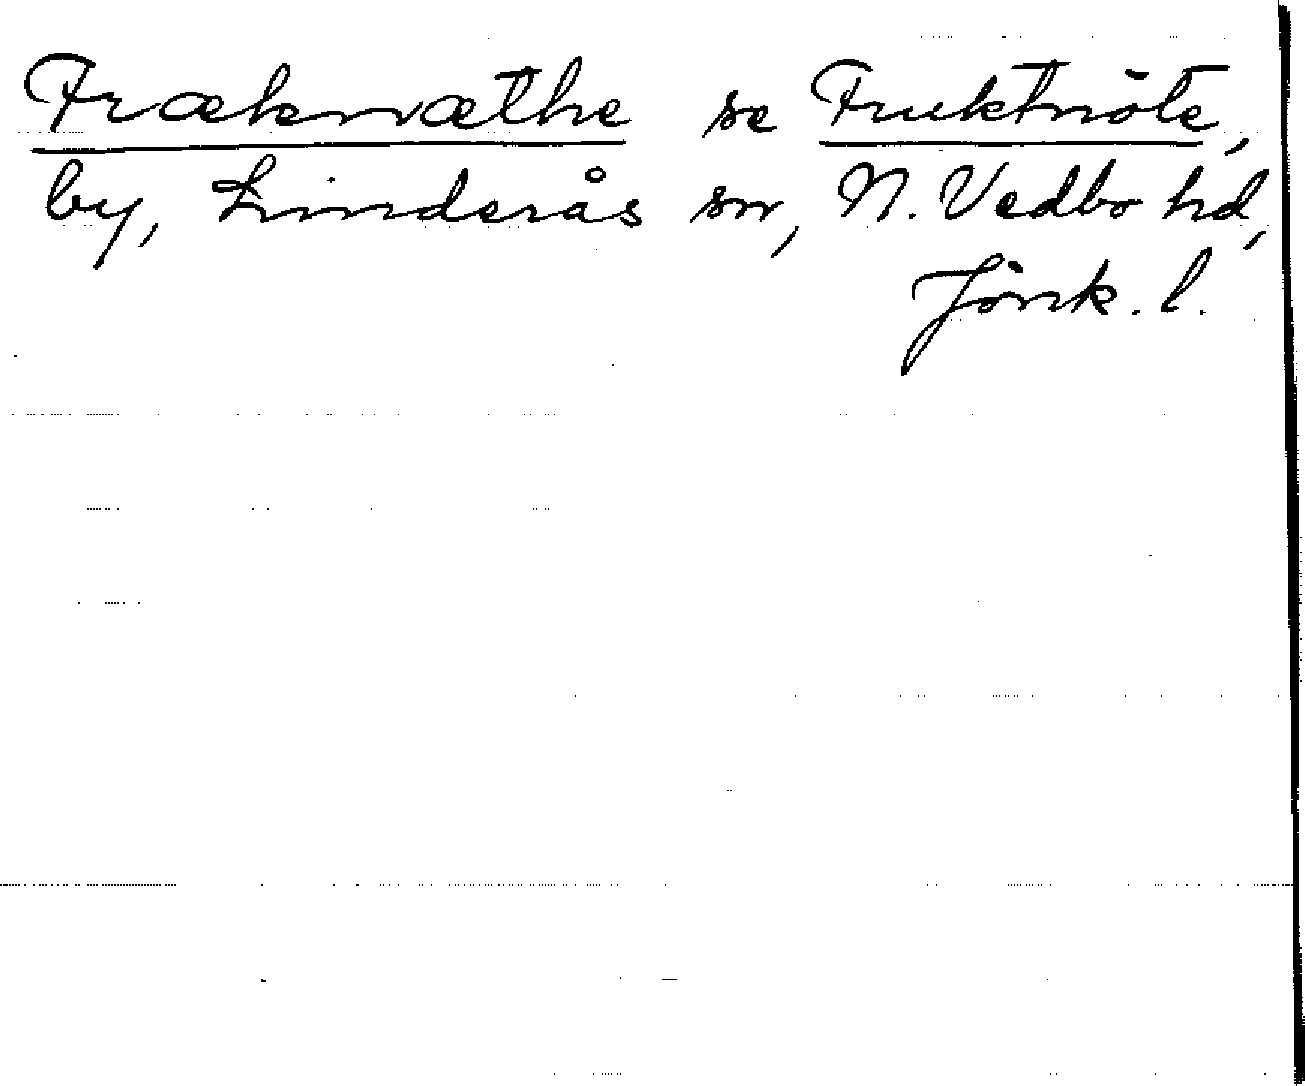 Fræknæthe se Fruktnöte,
by, Linderås sn, N. Vedbo hd,
Jönk. l.